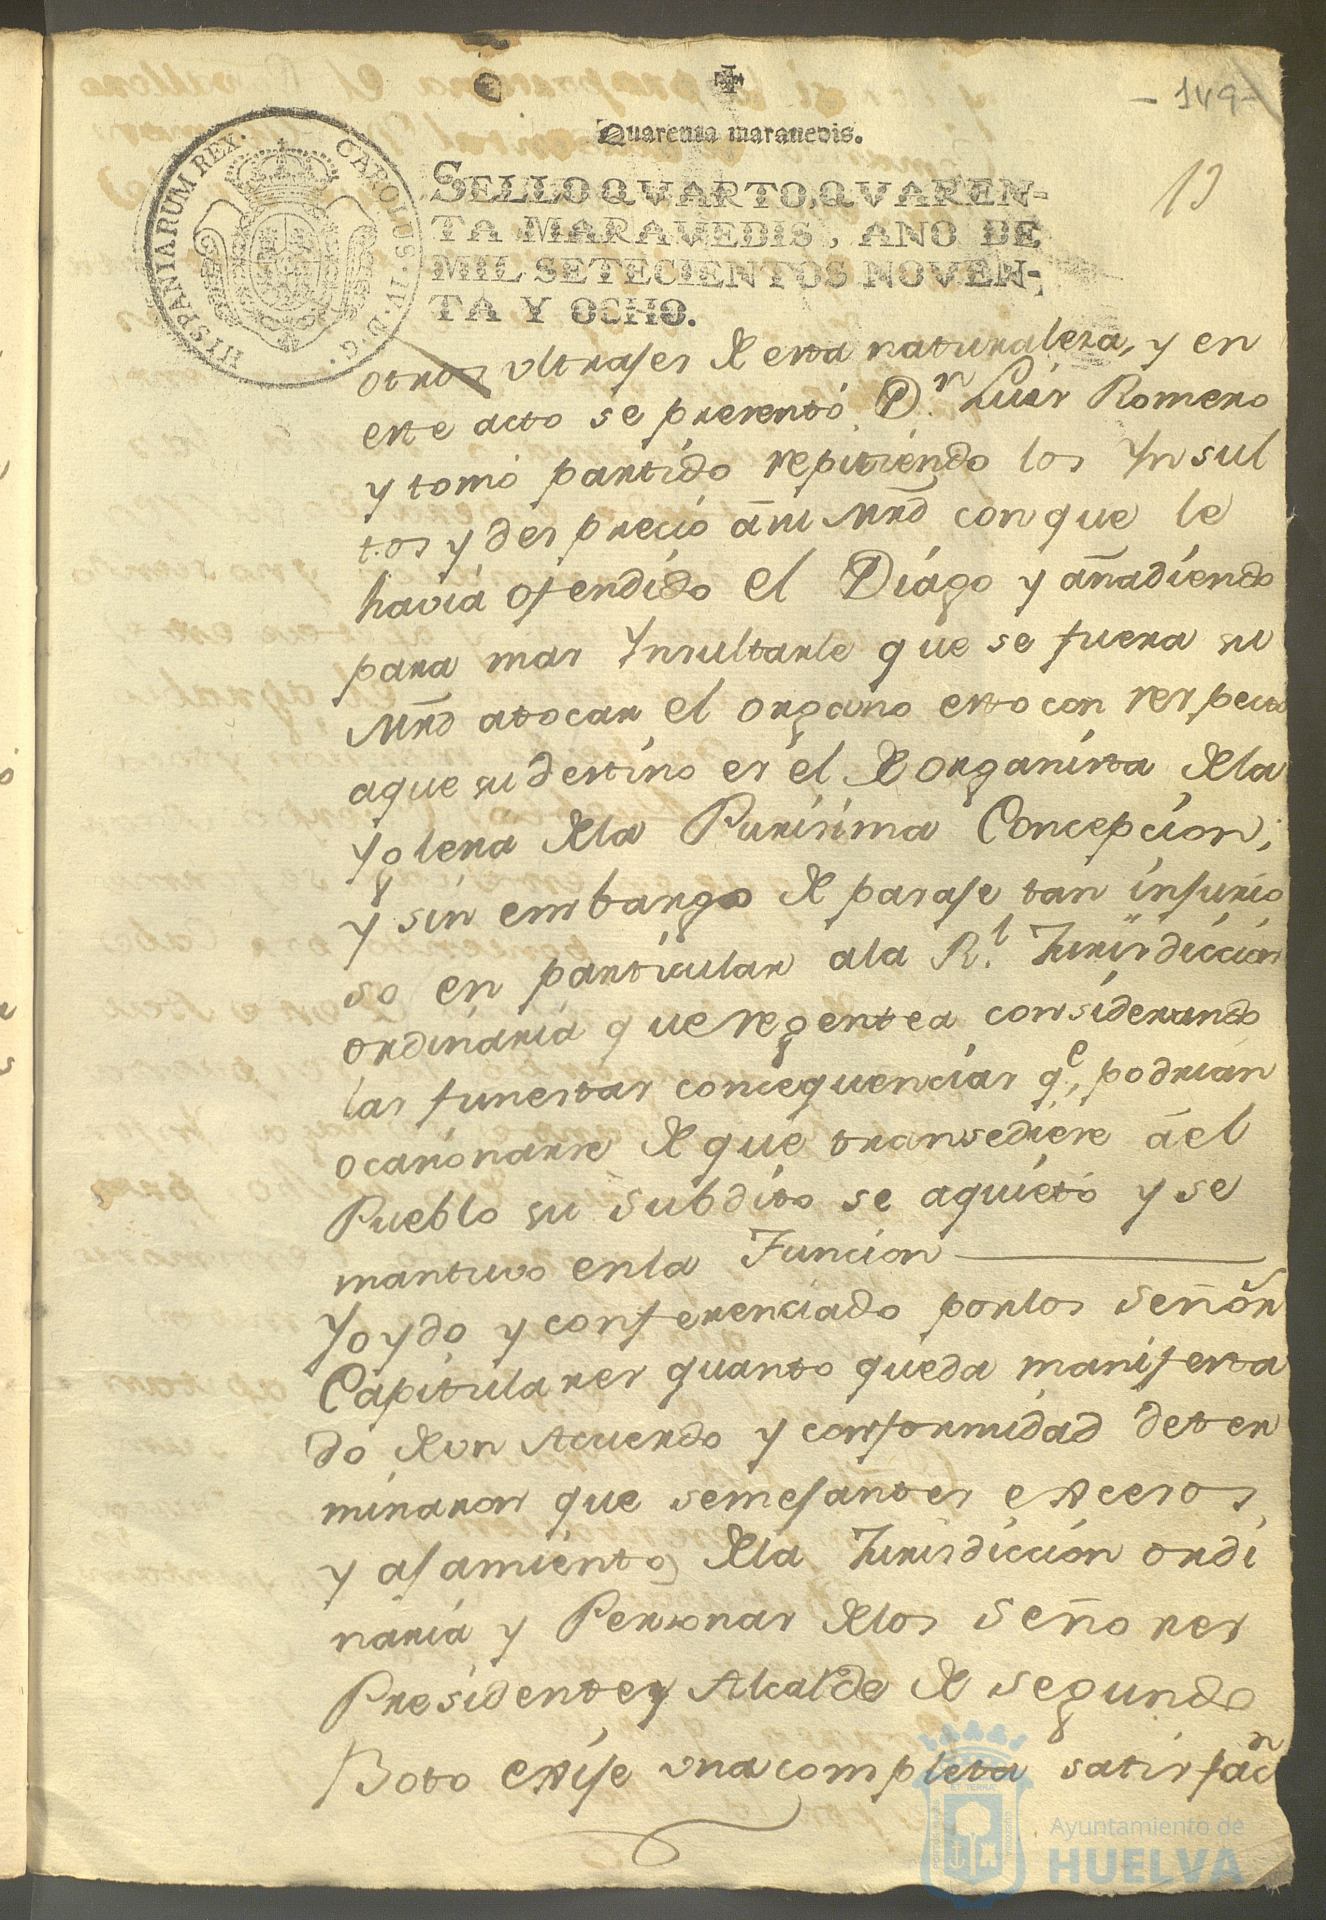 - 149 -
Quarenta maravedis.
13
HISPANIARUM REX. CAROLUS. IV. D. G.
SELLO QVARTO, QVAREN-
TA MARAVEDIS, AÑO DE
MIL SETECIENTOS NOVEN-
TA Y OCHO.
otros ultrajes de esta naturaleza, y en
este acto se presentó D.n Luis Romero
y tomó partido repitiendo los Ynsul
tos y desprecio á su Mrd con que le
haviá ofendido el Diágo y añadiendo
para mas Ynsultarle que se fuera su
Mrd atocar el organo esto con respecto
aque su destino es el de organista dela
Yglesia dela Purisima Concepcion;
y sin embargo de parage tan injurio
so en particular ala R.l Jurisdiccion
ordinaria que regentea considerando
las funestas concequencias q.e podrian
ocacionarse de que transediere á el
Pueblo su subdito se aquietó y se
mantuvo enla Funcion
Yoydo y conferenciado porlos Señor
Capitulares quanto queda manifesta
do deun Acuerdo y conformidad deter
minaron que semejantes excesos
y ajamiento dela Jurisdiccion ordi
naria y Personas delos Señores
Presidente y Alcalde de segundo
Boto exije una completa satisfacn
Ayuntamiento de
HUELVA